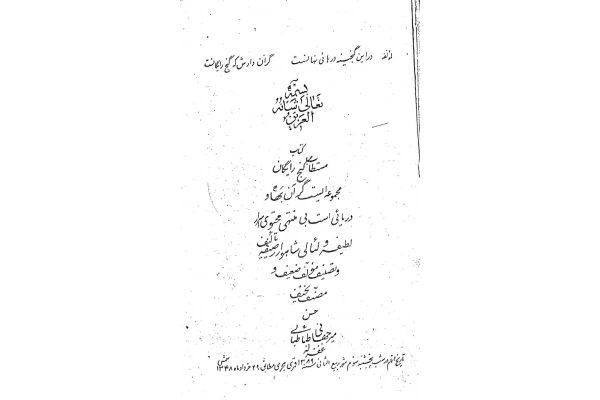 در این گنجینه درهائی نهانست گران دارش که گنج رایگانست
بسمه
تعالی شانه
العزیز
کتاب
مستطاب گنج رایگان
مجموعه ایست گران بها و
دریائی است بی منتهی محتوی اسرار
لطیفه و لئالی شاهوار
و تصنیف مؤلف ضعیف و
مصنف نحیف
حسن
میرجهانی طباطبائی
عفی له
پنجشنبه سوم شهر ربیع الثانی ۱۳۸۹ قمری هجری مطابق ۲۹ خرداد ماه ۱۳۴۸ شمسی